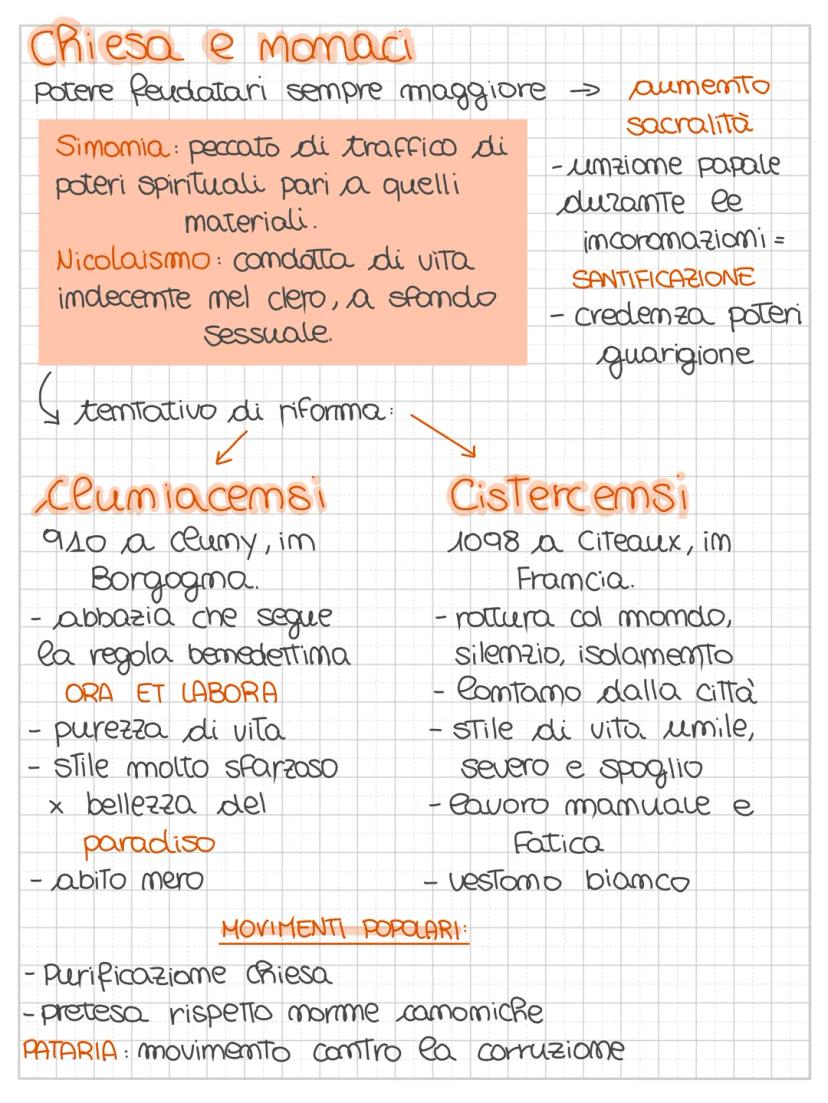 Chiesa e monaci
potere feudatari sempre maggiore → aumento
sacralità
Simonia: peccato di traffico di
poteri spirituali pari a quelli
materiali.
Nicolaismo: condotta di vita
indecente nel clero, a sfondo
sessuale.
- unzione papale
durante le
incoronazioni =
SANTIFICAZIONE
- credenza poteri
guarigione
↳ tentativo di riforma:
Cluniacensi
910 a Cluny, in
Borgogna.
- abbazia che segue
la regola benedettina
ORA ET LABORA
- purezza di vita
- stile molto sfarzoso
x bellezza del
paradiso
- abito nero
Cistercensi
1098 a Citeaux, in
Francia.
- rottura col mondo,
silenzio, isolamento
- lontano dalla città
- stile di vita umile,
severo e spoglio
- lavoro manuale e
fatica
- vestono bianco
MOVIMENTI POPOLARI:
- purificazione chiesa
- pretesa rispetto norme canoniche
PATARIA: movimento contro la corruzione